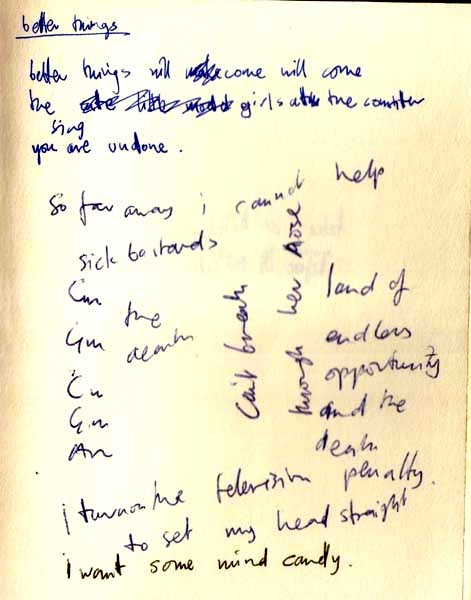 better things
better things will come will come
the girls at the counter
sing
you are undone.
so far away i cannot help
sick bastards
Cm
Gm the
death
Cm
Gm
Am
Can't break
through her
land of
endless
opportunity
and the
death
penalty.
i turn on the television
to set my head straight
i want some mind candy.